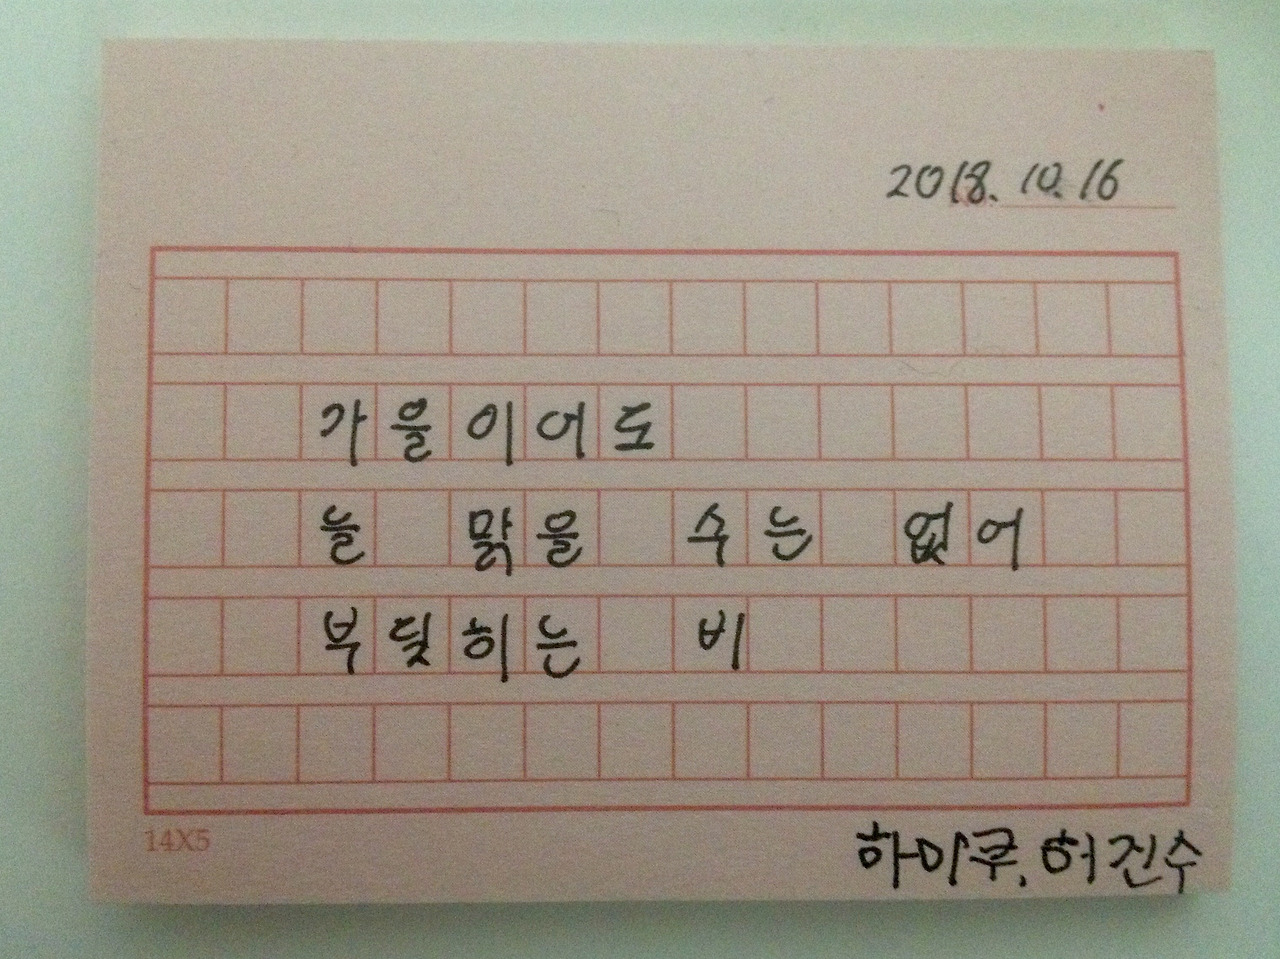 2018. 10. 16
가을이어도
늘 맑을 수는 없어
부딪히는 비
14X5
하이쿠, 허진수